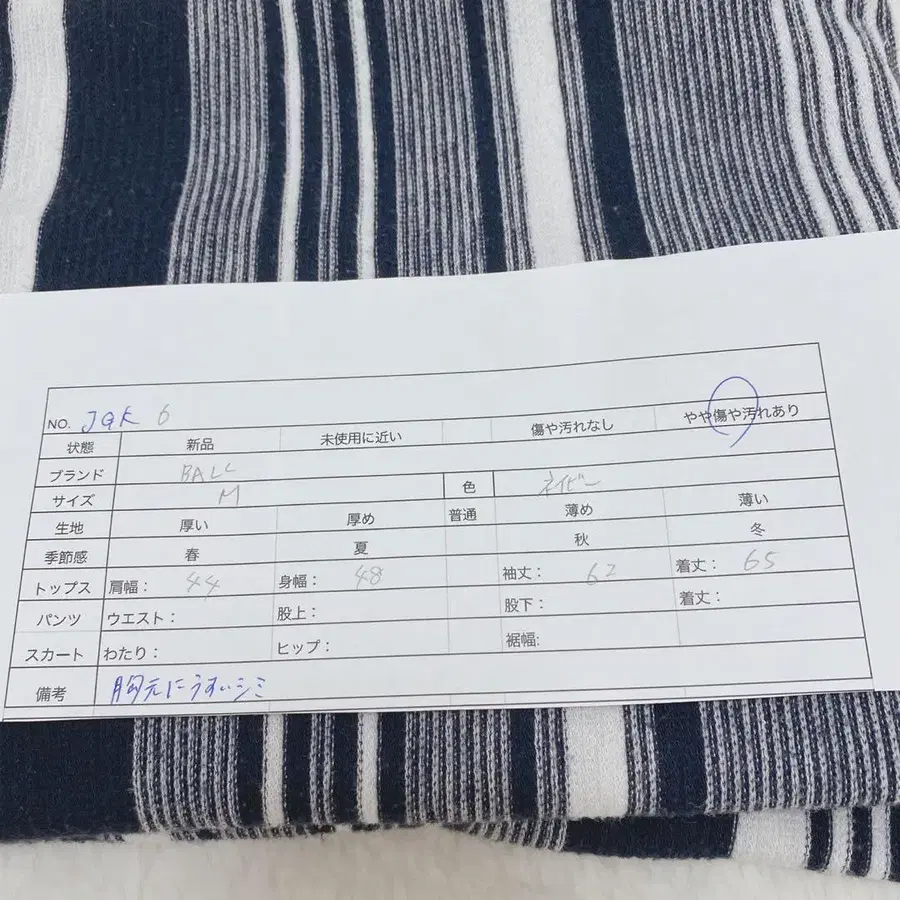 NO. JGK 6
状態 新品 未使用に近い 傷や汚れなし やや傷や汚れあり
ブランド BALL
サイズ M 色 ネイビー
生地 厚い 厚め 普通 薄め 薄い
季節感 春 夏 秋 冬
トップス 肩幅： 44 身幅： 48 袖丈： 62 着丈： 65
パンツ ウエスト： 股上： 股下： 着丈：
スカート わたり： ヒップ： 裾幅:
備考 胸元にうすいシミ